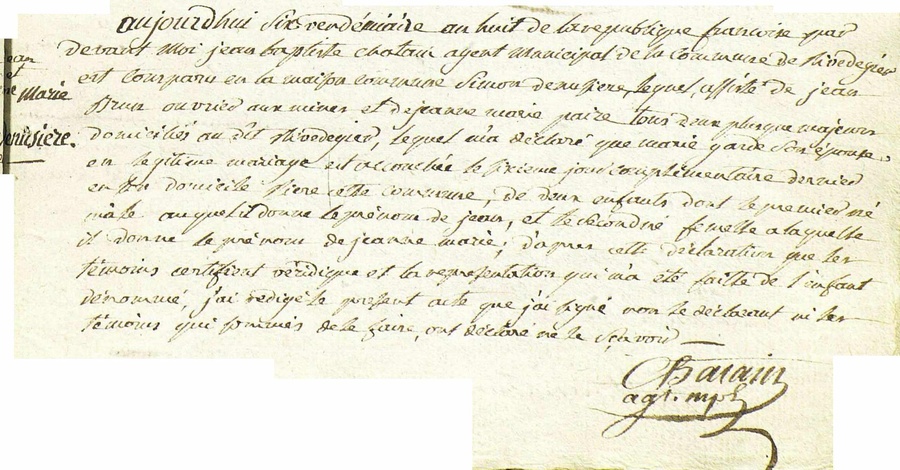 aujourdhui six vendémiaire an huit de la republique francoise par
devant moi jean baptiste chatain agent municipal de la commune de
est comparu en la maison commune Simon denisiere, lequel, assisté de jean
brun ouvrier aux mines et de jeanne marie paire tous deux plusque majeurs
domiciliés au dit, lequel m'a déclaré que marie garde son épouse
en legitime mariage est accouchée le sixieme jour complementaire dernier
en son domicile riere cette commune, de deux enfants dont le premier né
mâle auquel il donne le prénom de jean, et le second né femelle a laquelle
il donne le prénom de jeanne marie; d'apres cette déclaration que les
témoins certifient véridique et la representation qui m'a été faitte de l'enfant
dénommé, j'ai redigé le present acte que j'ai signé non le déclarant ni les
témoins qui sommés de le faire, ont déclaré ne le sçavoir
ean
et
ne Marie
enisière.
Chatain
agt. mpl